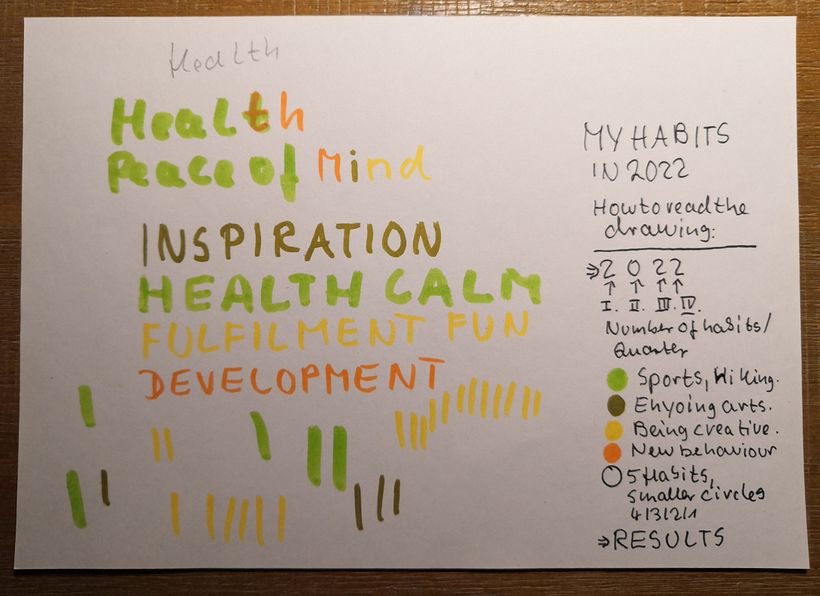 Health
Health
Peace of Mind
INSPIRATION
HEALTH CALM
FULFILMENT FUN
DEVELOPMENT
MY HABITS
IN 2022
How to read the
drawing:
⇒ 2 0 2 2
↑ ↑ ↑ ↑
I. II. III. IV.
Number of habits/
Quarter
Sports, Hiking.
Enyoing arts.
Being creative.
New behaviour
5 Habits,
smaller circles
4/3/2/1
⇒ RESULTS